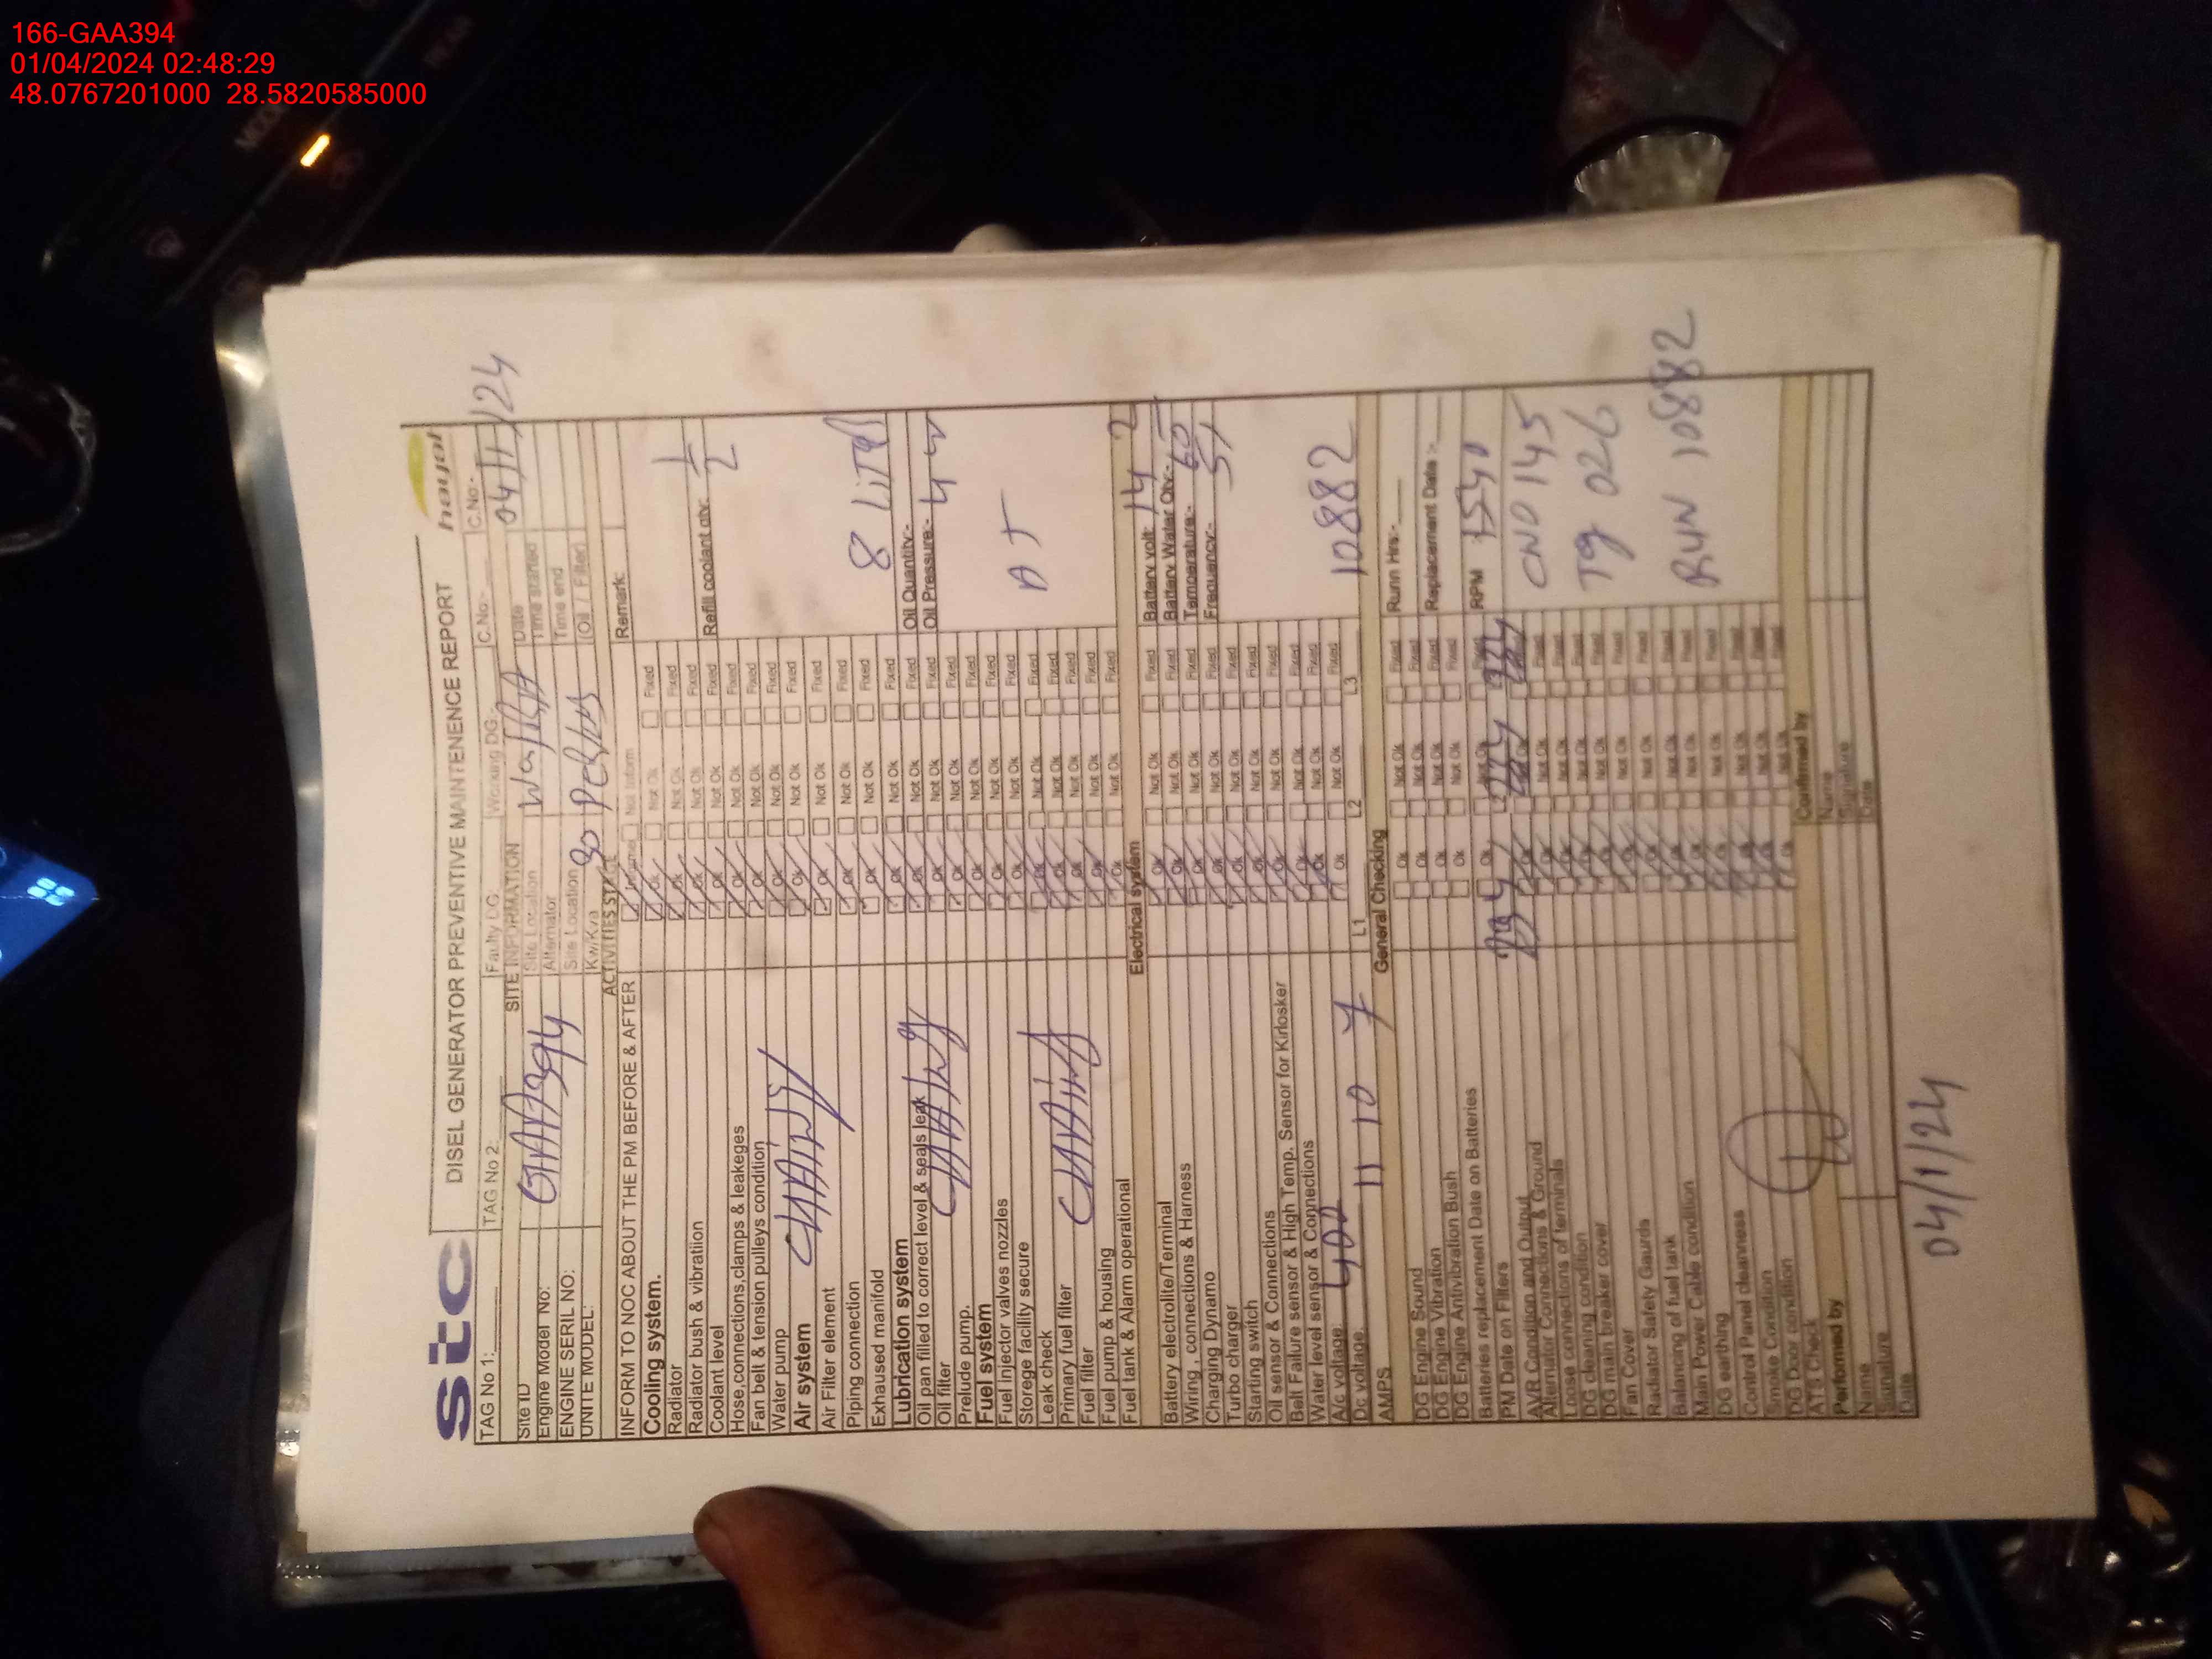 166-GAA394
01/04/2024 02:48:29
48.0767201000 28.5820585000
stc
DISEL GENERATOR PREVENTIVE MAINTENENCE REPORT
hayat
TAG No 1: TAG No 2: Faulty DG: Working DG:- C.No:- C.No:-
SITE INFORMATION
Site ID GAA394 Site Location Wafra Date 04/1/24
Engine Model No: Alternator Time started
ENGINE SERIL NO: Site Location Time end
UNITE MODEL: Kw/Kva 30 (Oil / Filter)
ACTIVITIES STAGE
INFORM TO NOC ABOUT THE PM BEFORE & AFTER Informe Not Inform Remark:
Cooling system. Ok Not Ok Fixed
Radiator Ok Not Ok Fixed
Radiator bush & vibratiion Ok Not Ok Fixed
Coolant level Ok Not Ok Fixed Refill coolant qty: 1/2
Hose,connections,clamps & leakeges Ok Not Ok Fixed
Fan belt & tension pulleys condition Ok Not Ok Fixed
Water pump Ok Not Ok Fixed
Air system Ok Not Ok Fixed
Air Filter element Ok Not Ok Fixed
Piping connection Ok Not Ok Fixed
Exhausted manifold Ok Not Ok Fixed
Lubrication system Ok Not Ok Fixed
Oil pan filled to correct level & seals leak Ok Not Ok Fixed Oil Quantity:- 8
Oil filter Ok Not Ok Fixed Oil Pressure:-
Prelude pump. Ok Not Ok Fixed
Fuel system Ok Not Ok Fixed
Fuel injector valves nozzles Ok Not Ok Fixed
Storege facility secure Ok Not Ok Fixed
Leak check Ok Not Ok Fixed
Primary fuel filter Ok Not Ok Fixed
Fuel filter Ok Not Ok Fixed
Fuel pump & housing Ok Not Ok Fixed
Fuel tank & Alarm operational
Electrical system
Battery electrolite/Terminal Ok Not Ok Fixed Battery volt: 14 2
Wiring , connections & Harness Ok Not Ok Fixed Battery Water Qty:-
Charging Dynamo Ok Not Ok Fixed Temperature:- 60
Turbo charger Ok Not Ok Fixed Frequency:- 51
Starting switch Ok Not Ok Fixed
Oil sensor & Connections Ok Not Ok Fixed
Belt Failure sensor & High Temp. Sensor for Kirlosker Ok Not Ok Fixed
Water level sensor & Connections Ok Not Ok Fixed
A/c voltage: 400 Ok Not Ok Fixed
Dc voltage: 10882
AMPS 11 10 7 L1 L2 L3
General Checking
DG Engine Sound Ok Not Ok Fixed Runn Hrs:-
DG Engine Vibration Ok Not Ok Fixed
DG Engine Antivibration Bush Ok Not Ok Fixed Replacement Date :-
Batteries replacement Date on Batteries Ok Not Ok Fixed
PM Date on Filters RPM :- 1540
AVR Condition and Output
Alternator Connections & Ground
Loose connections of terminals
DG cleaning condition
DG main breaker cover
Fan Cover
Radiator Safety Gaurds
Balancing of fuel tank
Main Power Cable condition
DG earthing
Control Panel cleanness
Smoke Condition
DG Door condition
ATS Check
CND 145
Tg 026
RUN 10882
Performed by Confirmed by
Name Name
Signature Signature
Date Date
04/1/24